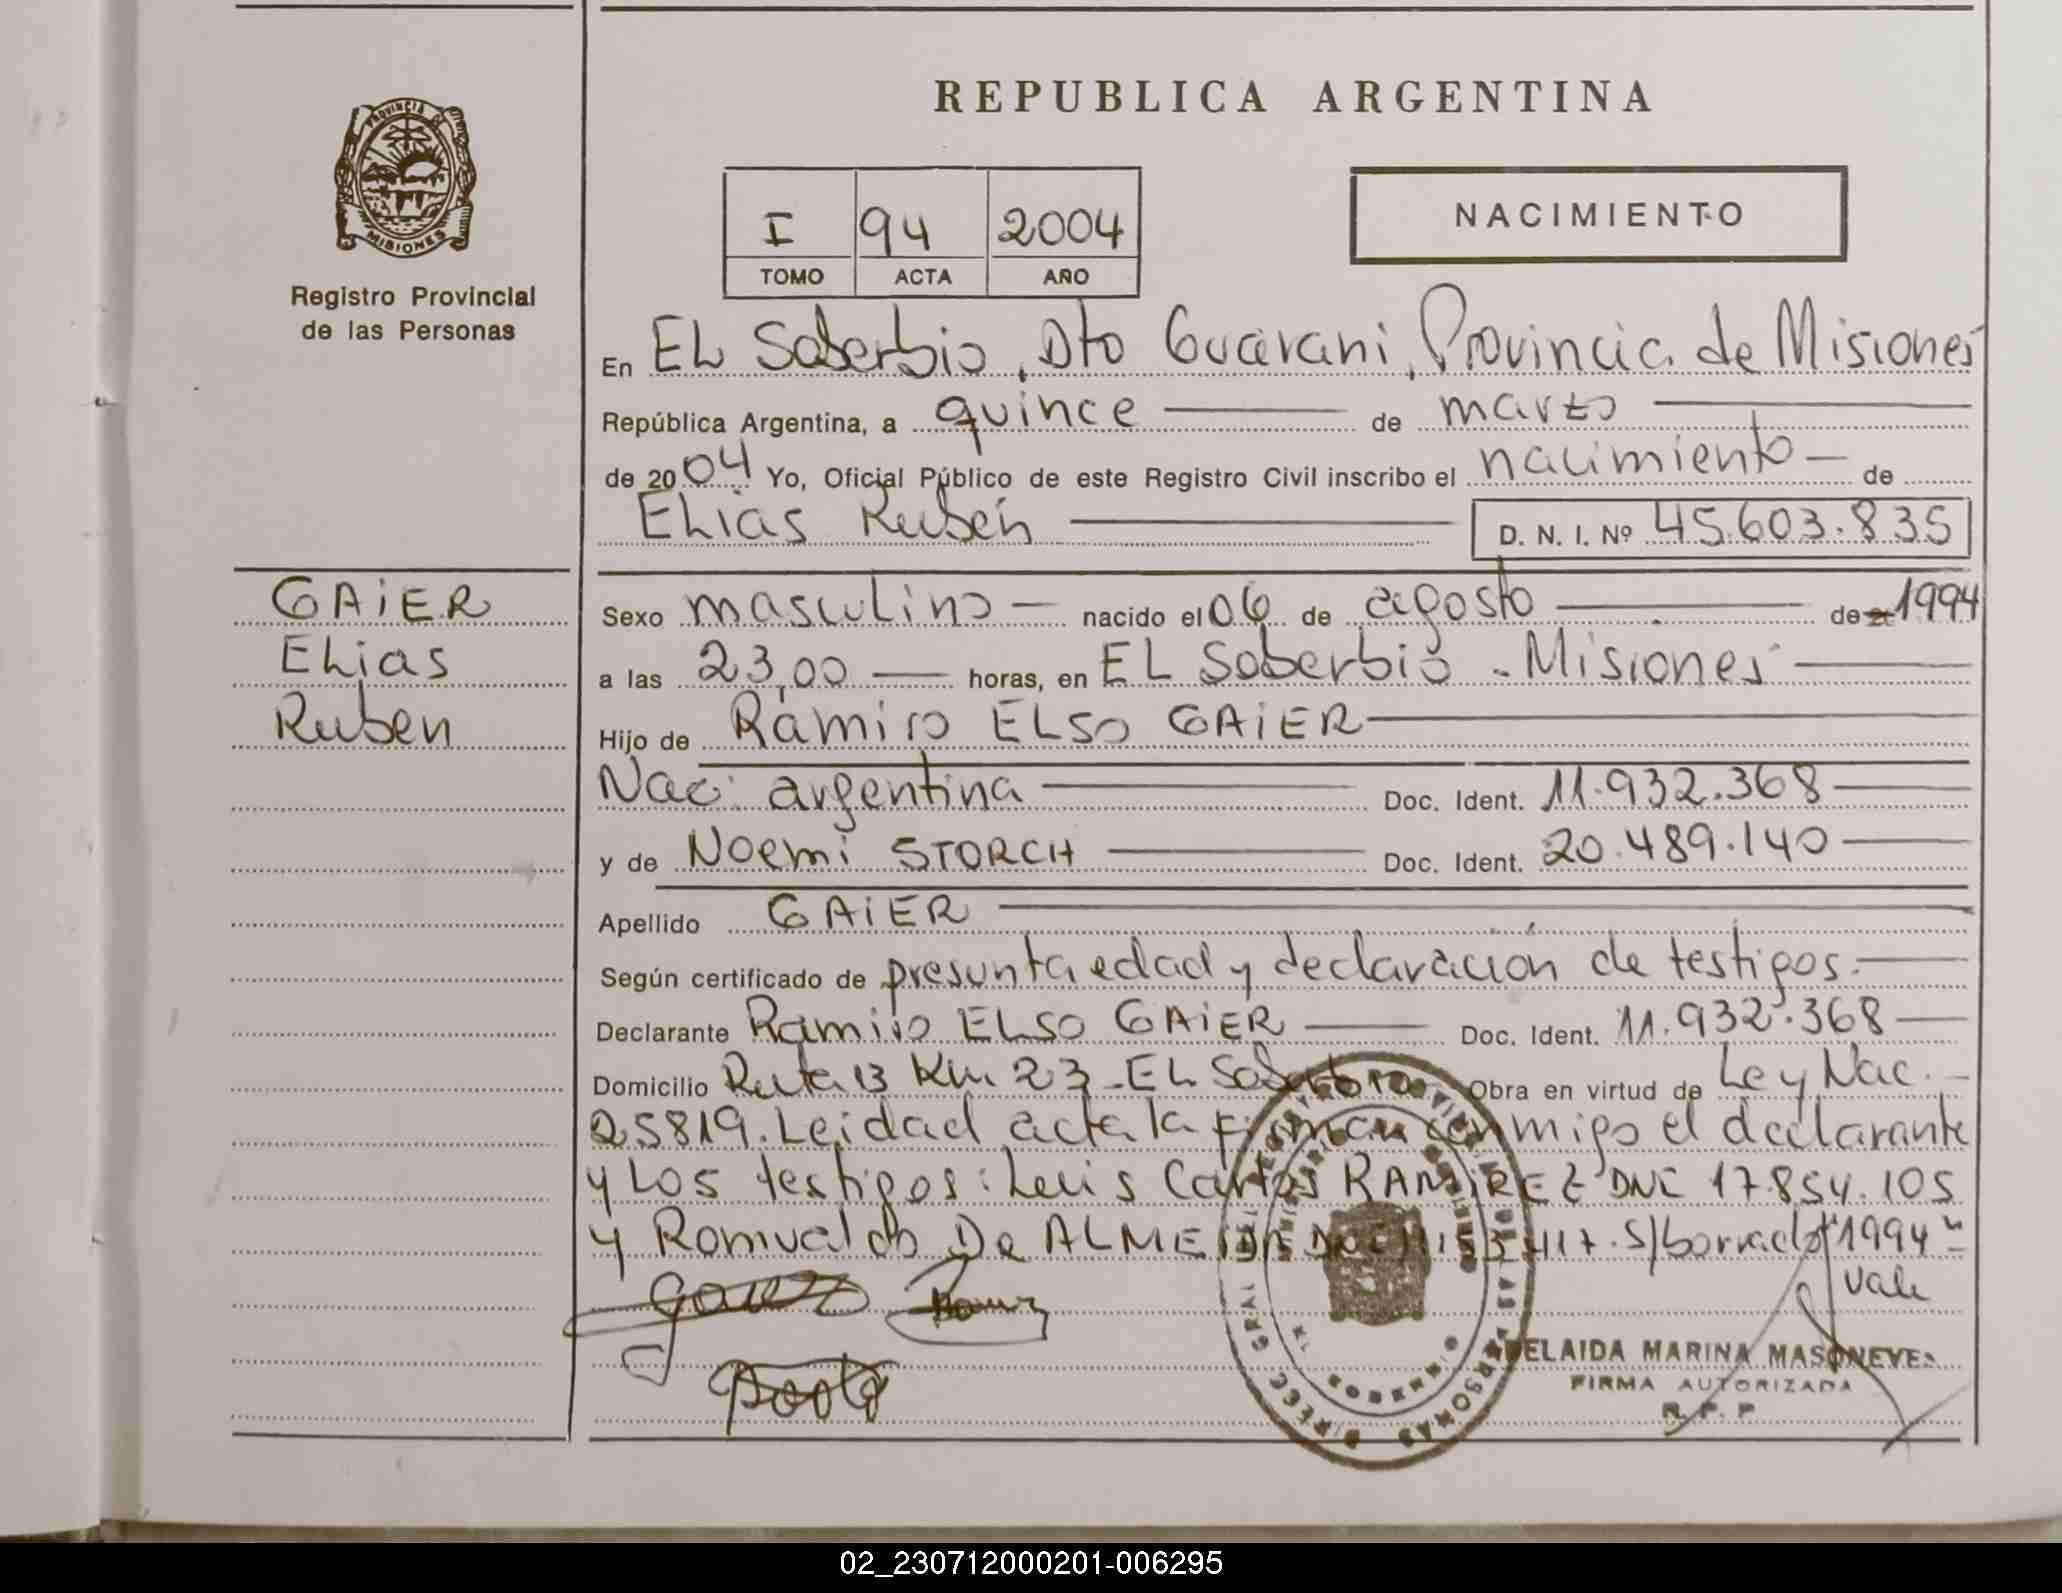 REPUBLICA ARGENTINA
PROVINCIA DE
MISIONES
Registro Provincial
de las Personas
I 94 2004
TOMO ACTA AÑO
NACIMIENTO
En EL Soberbio, Dto Guarani, Provincia de Misiones
República Argentina, a quince de marzo
de 2004 Yo, Oficial Público de este Registro Civil inscribo el nacimiento de
Elias Rubén D. N. I. Nº 45.603.835
GAiER
Elias
Ruben
Sexo masculino nacido el 06 de agosto de 1994
a las 23,00 horas, en EL Soberbio - Misiones
Hijo de Ramiro ELSO GAiER
Nac: argentina Doc. Ident. 11.932.368
y de Noemi STORCH Doc. Ident. 20.489.140
Apellido GAiER
Según certificado de presunta edad y declaración de testigos.
Declarante Ramiro ELSO GAiER Doc. Ident. 11.932.368
Domicilio Ruta 13 Km 23 - EL Soberbio Obra en virtud de Ley Nac.
25819. Leidad acta la firman conmigo el declarante
y Los testigos: Luis Carlos RAMIREZ DNI 17.854.105
y Romualdo De ALMEIDA S/borrado "1994"
Vale
ADELAIDA MARINA MASONEVES
FIRMA AUTORIZADA
R.P.P
02_230712000201-006295